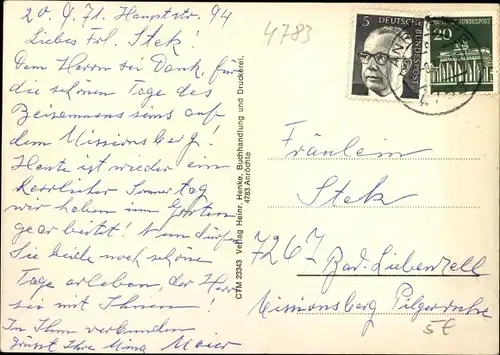 20.9.71. Hauptstr. 94
Liebes Frl. Stek!
Dem Herrn sei Dank, für
die schönen Tage des
Beisammenseins auf
dem Missionsberg!
Heute ist wieder ein
herrlicher Sommertag
wir haben im Garten
gearbeitet! Nun dürfen
Sie beide noch schöne
Tage erleben, der Herr
sei mit Ihnen!
In Ihm verbunden
grüsst Ihre Mina Maier
4783
CTM 23343 Verlag Heinr. Henke, Buchhandlung und Druckerei,
4783 Anröchte
5 DEUTSCHE BUNDESPOST
20 DEUTSCHE BUNDESPOST
Fräulein
Stek
7267 Bad Liebenzell
Missionsberg Pilgerruhe
5€